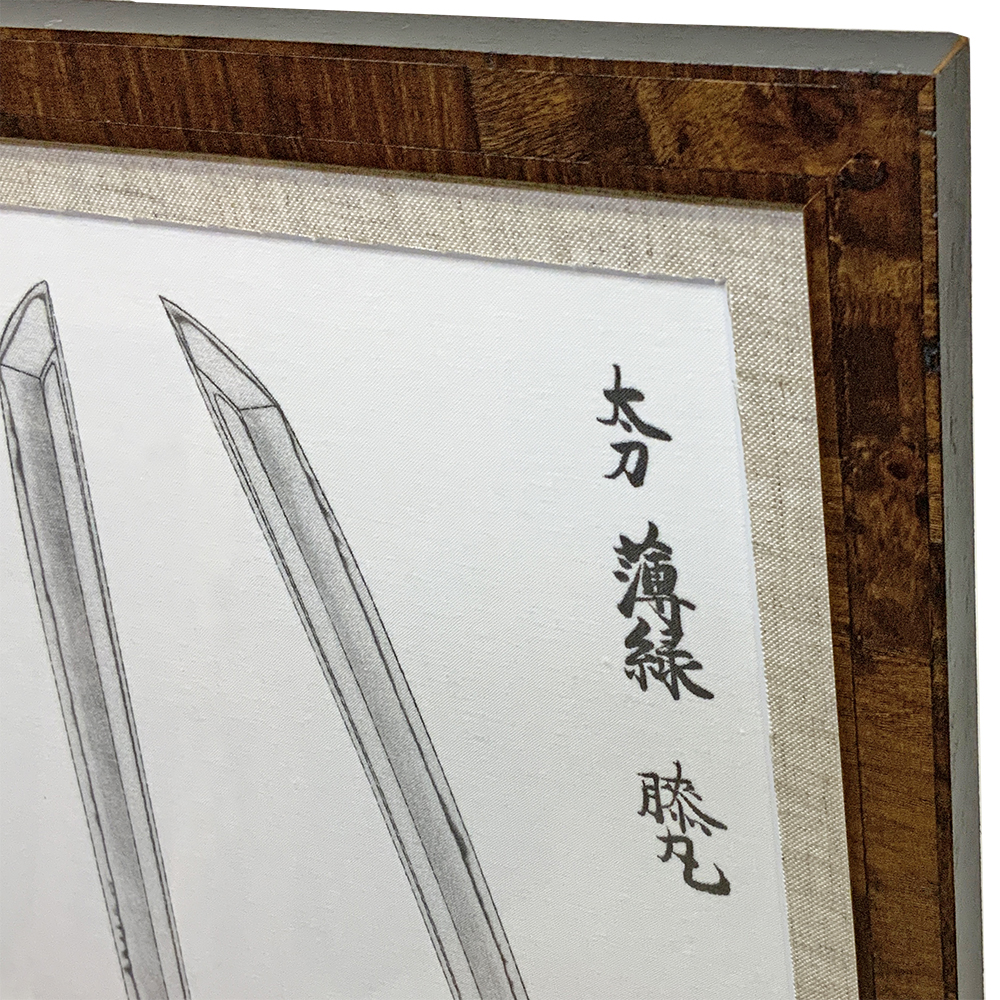 太刀 薄緑 膝丸